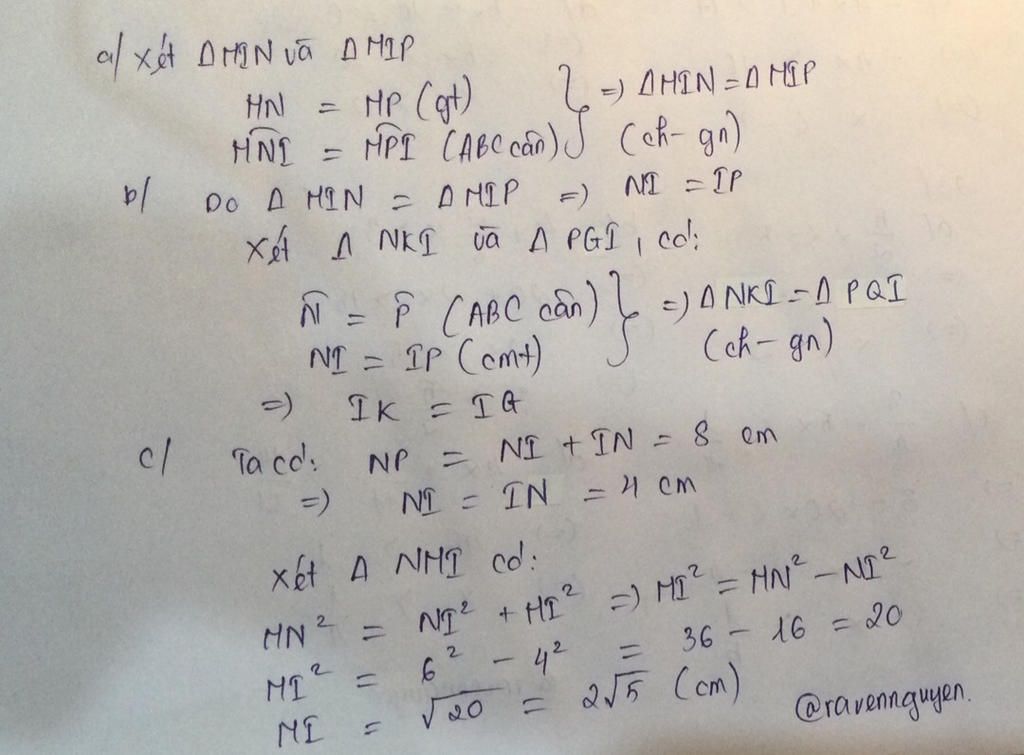 a/ Xét Δ MIN và Δ MIP
MN = MP (gt) } => Δ MIN = Δ MIP
M̂NI = M̂PI (ABC cân) (ch - gn)
b/ Do Δ MIN = Δ MIP => NI = IP
Xét Δ NKI và Δ PGI, có:
N̂ = P̂ (ABC cân) } => Δ NKI = Δ PQI
NI = IP (cmt) (ch - gn)
=> IK = IG
c/ Ta có: NP = NI + IN = 8 cm
=> NI = IN = 4 cm
Xét Δ NMI có:
MN² = NI² + MI² => MI² = MN² - NI²
MI² = 6² - 4² = 36 - 16 = 20
MI = √20 = 2√5 (cm)
@ravennguyen.